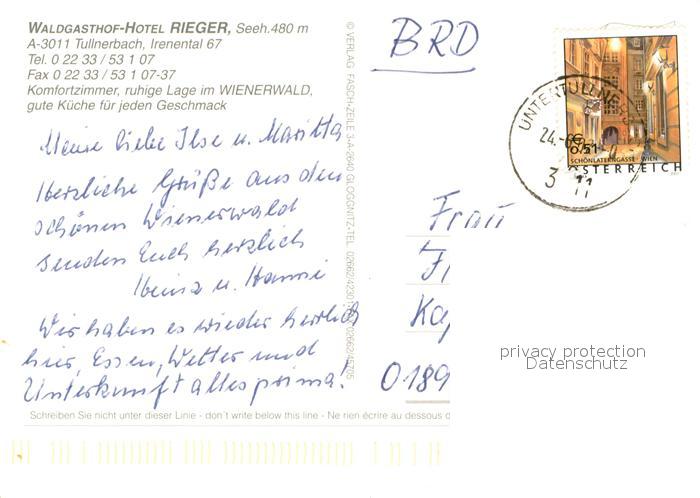 WALDGASTHOF-HOTEL RIEGER, Seeh.480 m
A-3011 Tullnerbach, Irenental 67
Tel. 0 22 33 / 53 1 07
Fax 0 22 33 / 53 1 07-37
Komfortzimmer, ruhige Lage im WIENERWALD,
gute Küche für jeden Geschmack
Meine liebe Ilse u. Maritta
Herzliche Grüße aus dem
schönen Wienerwald
senden Euch herzlich
Heinz u. Hanni
Wir haben es wieder herrlich
hier, Essen, Wetter und
Unterkunft alles prima!
Schreiben Sie nicht unter dieser Linie - don´t write below this line - Ne rien écrire au dessous d
© VERLAG FASCH-ZEILE 3-A-2640 GLOGGNITZ-TEL.
BRD
UNTERTULLNE
24.-6
3 11
0,51
SCHÖNLATERNGASSE - WIEN
ÖSTERREICH
Frau
Ka
0189
privacy protection
Datenschutz